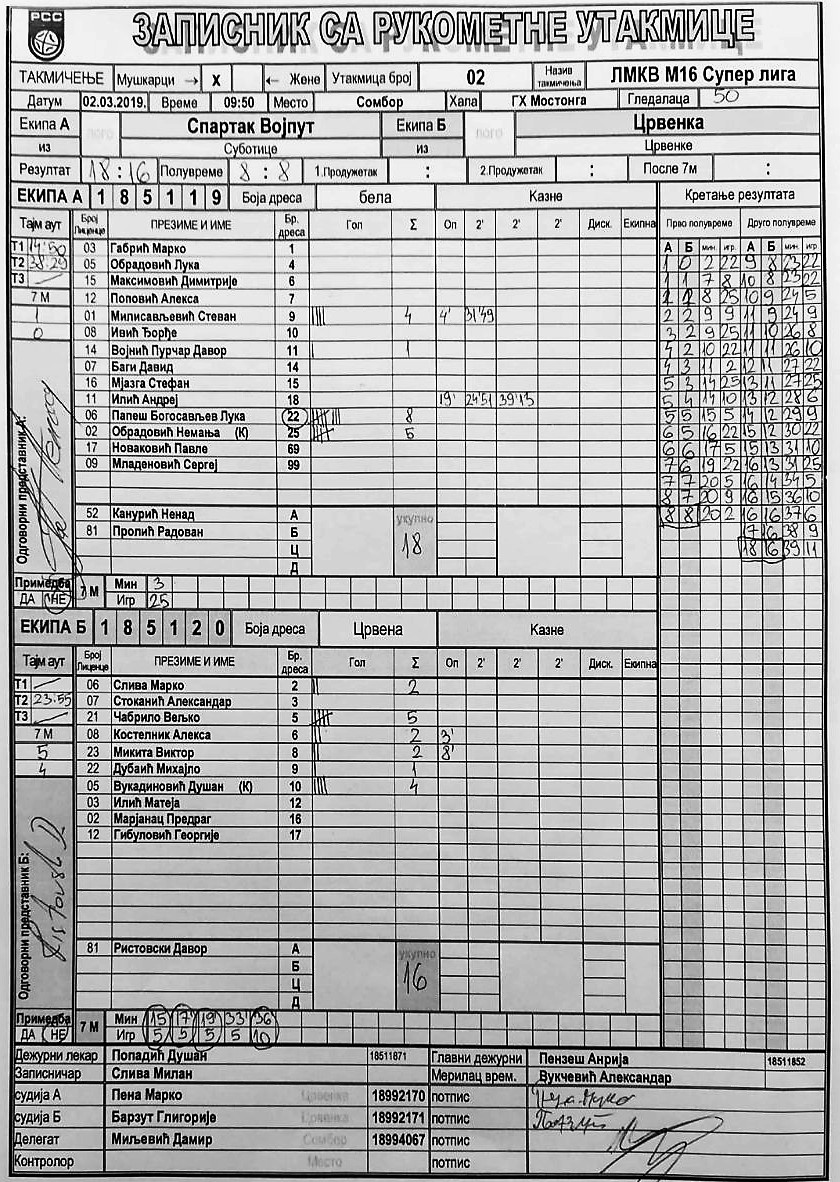 РСС
ЗАПИСНИК СА РУКОМЕТНЕ УТАКМИЦЕ
ТАКМИЧЕЊЕ Мушкарци → X ← Жене Утакмица број 02 Назив такмичења ЛМКВ М16 Супер лига
Датум 02.03.2019. Време 09:50 Место Сомбор Хала ГХ Мостонга Гледалаца 50
Екипа А лого Спартак Војпут Екипа Б лого Црвенка
из Суботице из Црвенке
Резултат 18:16 Полувреме 8:8 1.Продужетак : 2.Продужетак : После 7м :
ЕКИПА А 1 8 5 1 1 9 Боја дреса бела Казне Кретање резултата
Тајм аут Број Лиценце ПРЕЗИМЕ И ИМЕ Бр. дреса Гол Σ Оп 2' 2' 2' Диск. Екипна Прво полувреме Друго полувреме
А Б мин. игр. А Б мин. игр.
Т1 14'50 03 Габрић Марко 1
1 0 2 22 9 8 23 22
Т2 38.29 05 Обрадовић Лука 4
1 1 7 8 10 8 23 22
Т3 15 Максимовић Димитрије 6
7 М 12 Поповић Алекса 7
8 25 10 9 24 5
1 01 Милисављевић Стеван 9 |||| 4 4' 31'49
2 2 9 9 11 9 24 9
0 08 Ивић Ђорђе 10
3 2 9 25 11 10 26 8
14 Војнић Пурчар Давор 11 | 1
4 2 10 22 11 11 26 10
07 Баги Давид 14
4 3 11 2 12 11 27 22
16 Мјазга Стефан 15
5 3 14 25 13 11 27 25
11 Илић Андреј 18 19' 24'51 39'13
5 4 14 10 13 12 28 6
06 Папеш Богосављев Лука 22 8
5 5 15 5 14 12 29 9
02 Обрадовић Немања (К) 25 5
6 5 16 22 15 12 30 22
17 Новаковић Павле 69
6 6 17 5 15 13 31 10
09 Младеновић Сергеј 99
7 6 19 22 16 13 31 25
7 7 20 5 16 14 34 5
8 7 20 9 16 15 36 10
52 Канурић Ненад А укупно 18
8 8 20 2 16 16 37 6
81 Пролић Радован Б
17 16 38 9
Ц
18 16 39 11
Д
Одговорни представник А:
Примедба ДА НЕ 7 М Мин 3
Игр 25
ЕКИПА Б 1 8 5 1 2 0 Боја дреса Црвена Казне
Тајм аут Број Лиценце ПРЕЗИМЕ И ИМЕ Бр. дреса Гол Σ Оп 2' 2' 2' Диск. Екипна
Т1 06 Слива Марко 2 || 2
Т2 23.55 07 Стоканић Александар 3
Т3 21 Чабрило Вељко 5 5
7 М 08 Костелник Алекса 6 || 2 3'
5 23 Микита Виктор 8 || 2 8'
4 22 Дубаић Михајло 9 | 1
05 Вукадиновић Душан (К) 10 |||| 4
03 Илић Матеја 12
02 Марјанац Предраг 16
12 Гибуловић Георгије 17
81 Ристовски Давор А укупно 16
Б
Ц
Д
Одговорни представник Б:
Примедба ДА НЕ 7 М Мин 15 17 19 33' 36
Игр 5 5 5 5 10
Дежурни лекар Попадић Душан 18511871 Главни дежурни Пензеш Анрија 18511852
Записничар Слива Милан Мерилац врем. Вукчевић Александар
судија А Пена Марко Црвенка 18992170 потпис
судија Б Барзут Глигорије Црвенка 18992171 потпис
Делегат Миљевић Дамир Сомбор 18994067 потпис
Контролор Место потпис